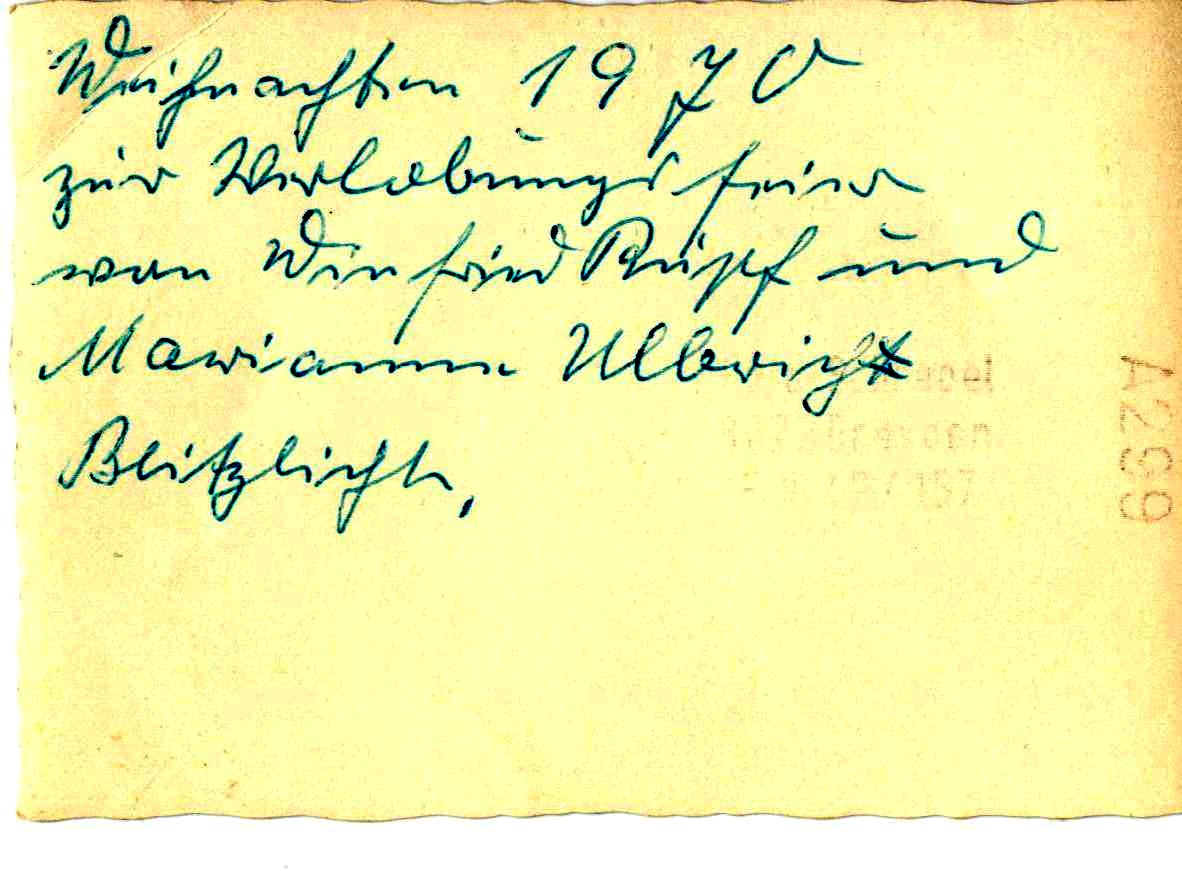 Weihnachten 1970
zur Verlobungsfeier
von Winfried Rüpf und
Marianne Ulbricht
Blitzlicht,
A299